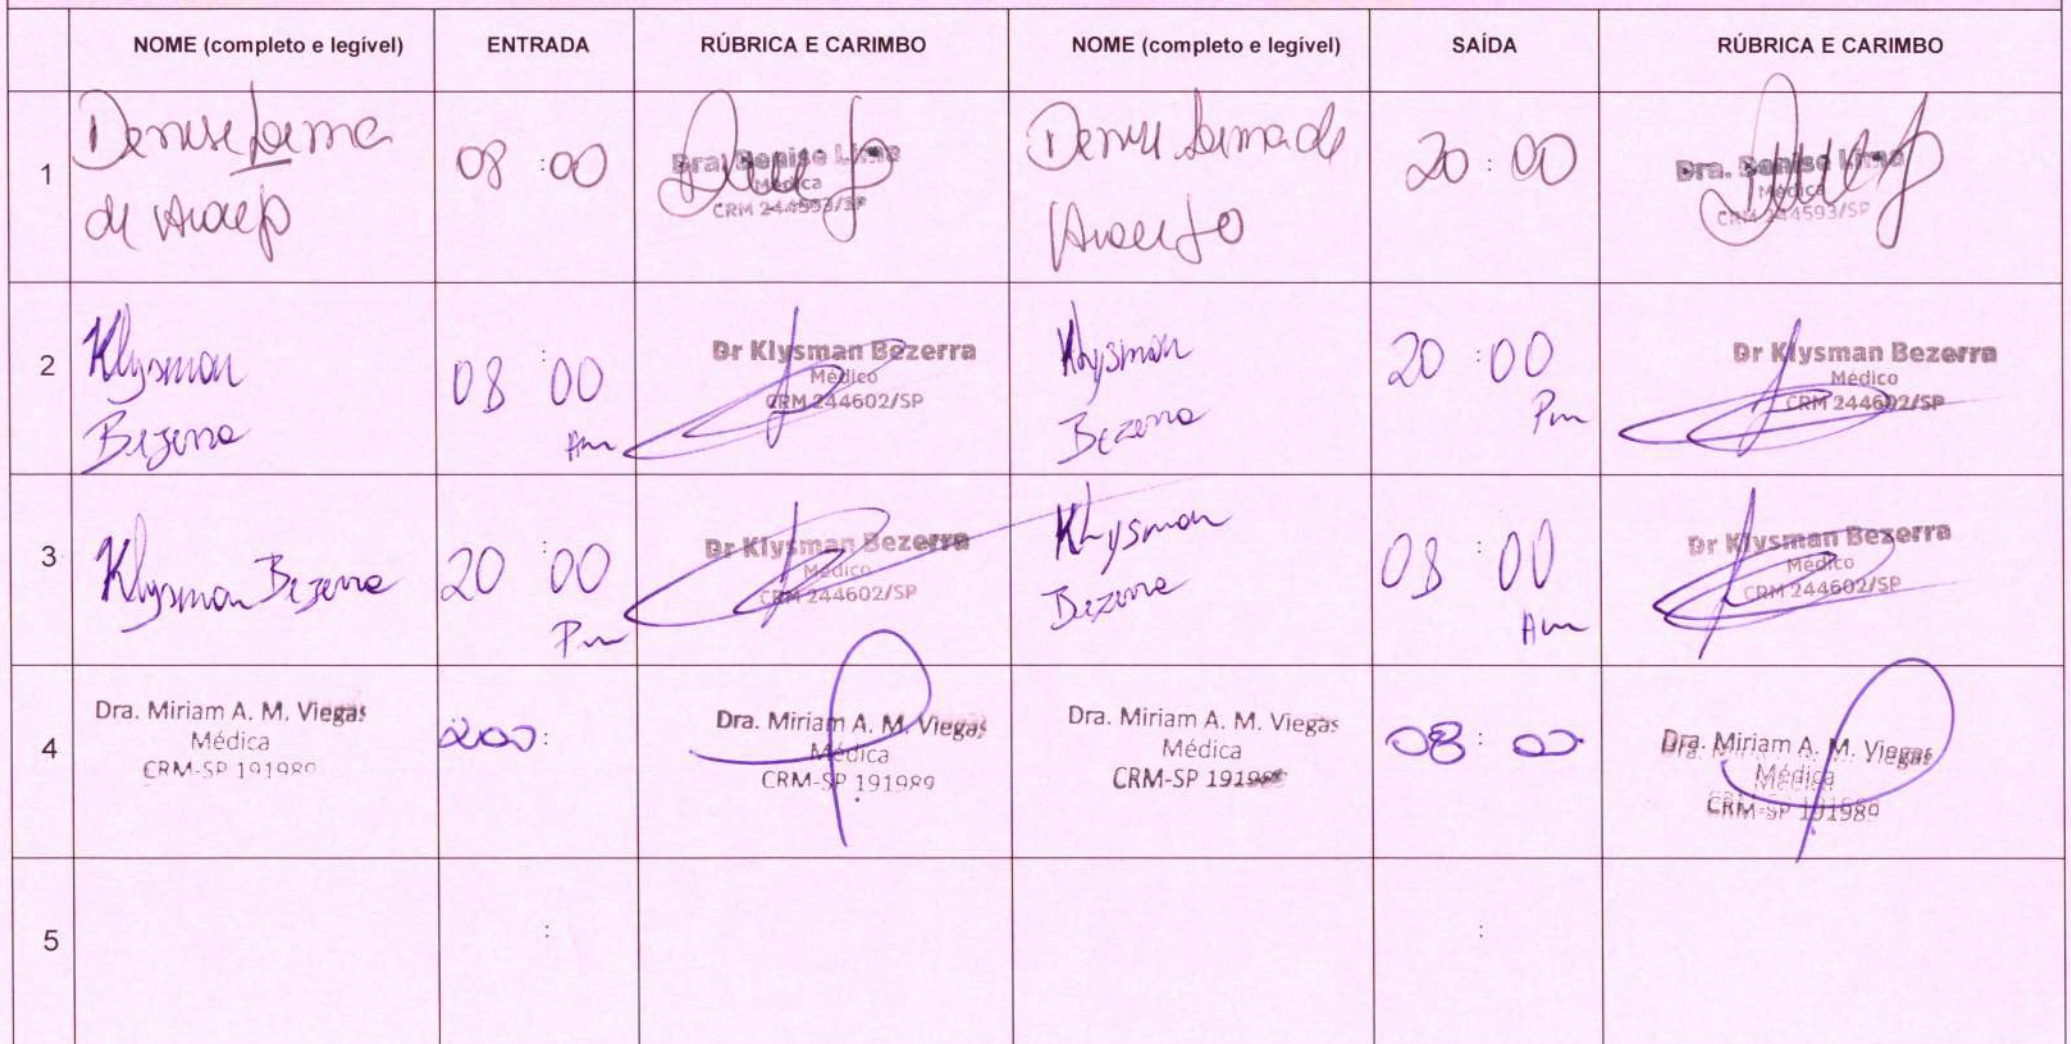 NOME (completo e legível) ENTRADA RÚBRICA E CARIMBO NOME (completo e legível) SAÍDA RÚBRICA E CARIMBO
1
Denise Lima
de Araujo
08:00
Dra. Denise Lima
Médica
CRM 244593/SP
Denise Lima de
Araujo
20:00
Dra. Denise Lima
Médica
CRM 244593/SP
2
Klysman
Bezerra
08:00
Am
Dr Klysman Bezerra
Médico
CRM 244602/SP
Klysman
Bezerra
20:00
Pm
Dr Klysman Bezerra
Médico
CRM 244602/SP
3
Klysman Bezerra
20:00
Pm
Dr Klysman Bezerra
Médico
CRM 244602/SP
Klysman
Bezerra
08:00
Am
Dr Klysman Bezerra
Médico
CRM 244602/SP
4
Dra. Miriam A. M. Viegas
Médica
CRM-SP 191989
200:
Dra. Miriam A. M. Viegas
Médica
CRM-SP 191989
Dra. Miriam A. M. Viegas
Médica
CRM-SP 191989
08:00
Dra. Miriam A. M. Viegas
Médica
CRM-SP 191989
5
:
: